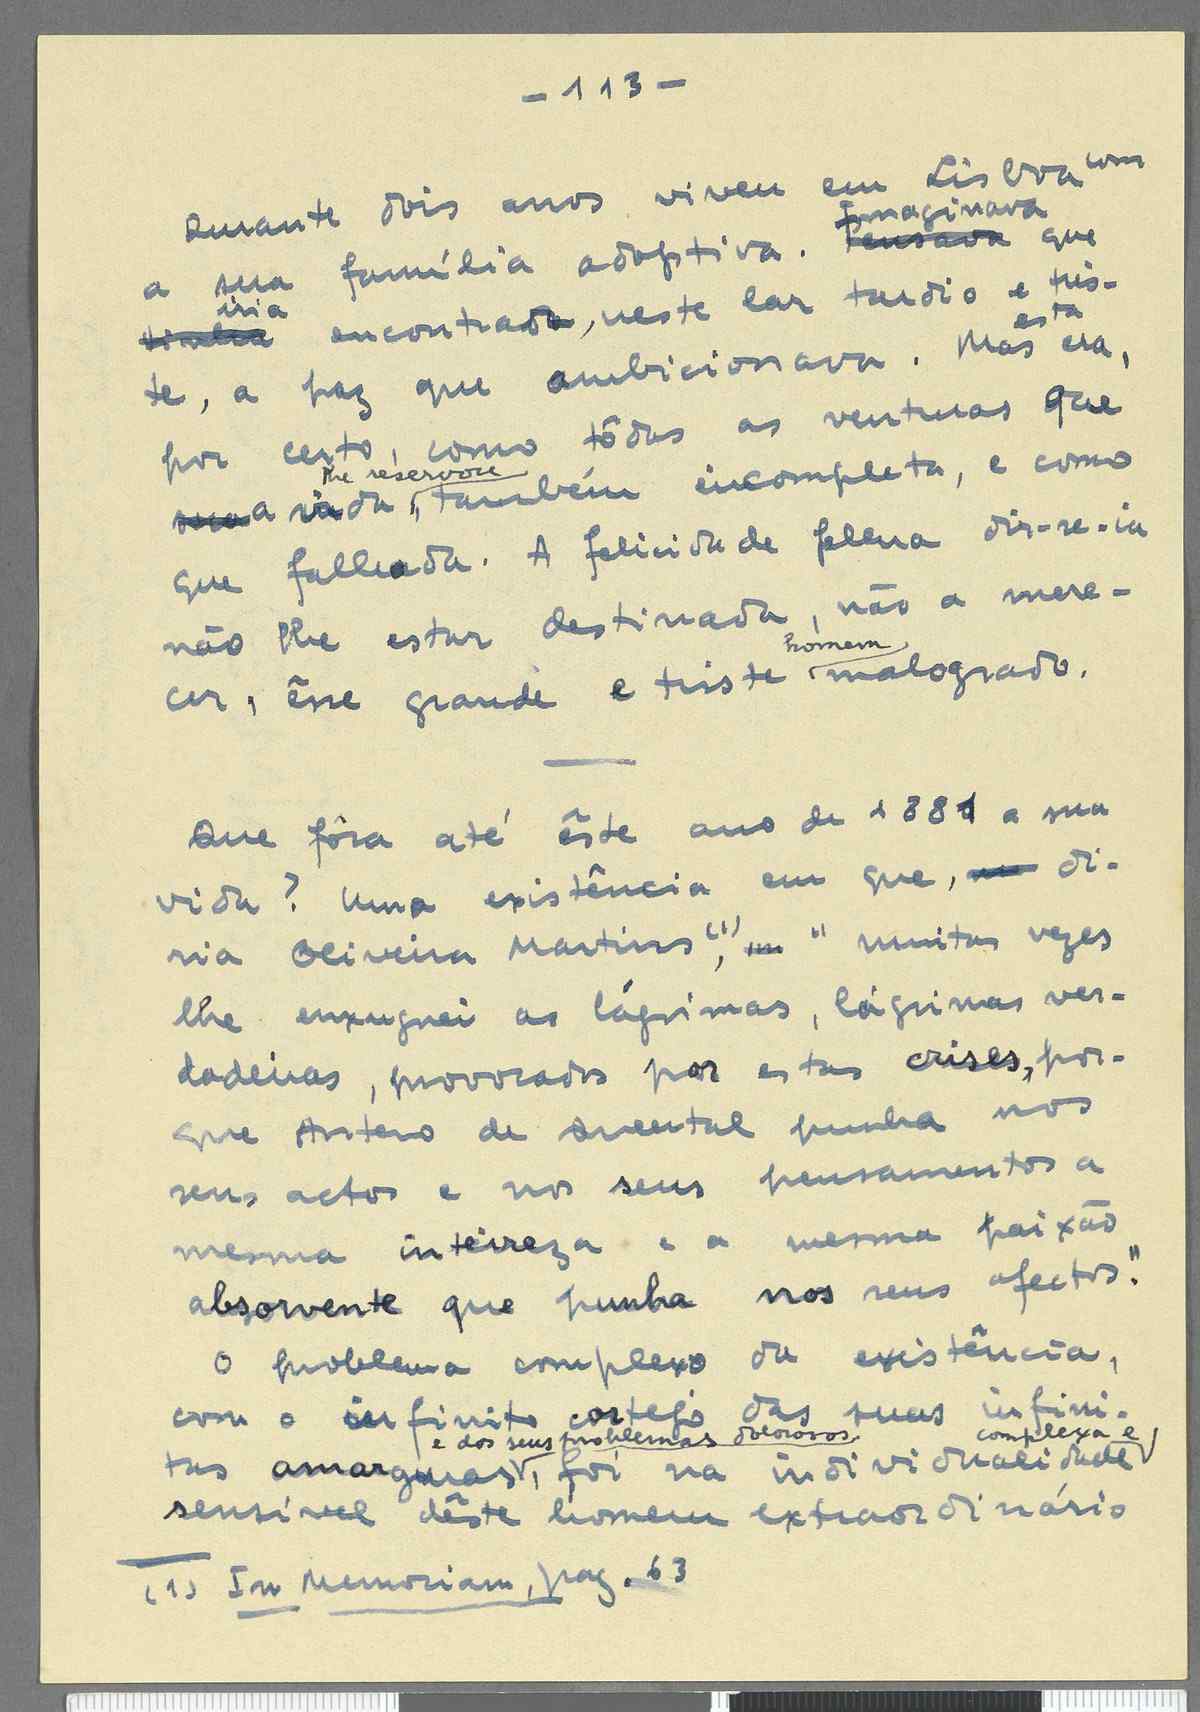 - 113 -
Durante dois anos viveu em Lisboa com
a sua família adoptiva. Pensava Imaginava que
tinha iria encontrado, neste lar tardio e tris-
te, a paz que ambicionava. Mas esta era,
por certo, como tôdas as venturas que
sua a vida lhe reservou, também incompleta, e como
que falhada. A felicidade plena dir-se-ia
não lhe estar destinada, não a mere-
cer, êsse grande e triste homem malogrado.
Que fôra até êste ano de 1881 a sua
vida? Uma existência em que, di-
ria Oliveira Martins(1), "muitas vezes
lhe enxuguei as lágrimas, lágrimas ver-
dadeiras, provocadas por estas crises, por-
que Antero de Quental punha nos
seus actos e nos seus pensamentos a
mesma inteireza e a mesma paixão
absorvente que punha nos seus afectos".
O problema complexo da existência,
com o infinito cortejo das suas infini-
tas amarguras e dos seus problemas dolorosos, foi na individualidade complexa e
sensível dêste homem extraordinário
(1) In Memoriam, pag. 63